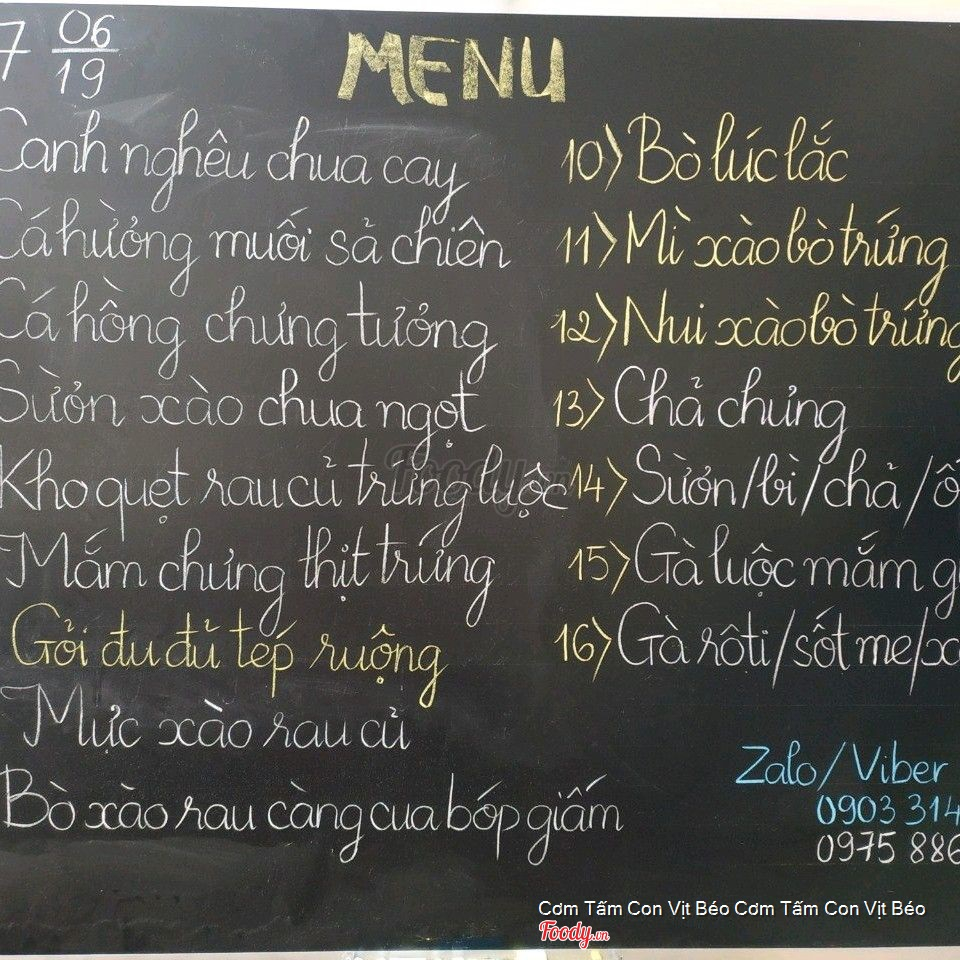 7 06/19
MENU
Canh nghêu chua cay
Cá hường muối sả chiên
Cá hồng chưng tương
Sườn xào chua ngọt
Kho quẹt rau củ trứng luộc
Mắm chưng thịt trứng
Gỏi đu đủ tép ruộng
Mực xào rau củ
Bò xào rau càng cua bóp giấm
10) Bò lúc lắc
11) Mì xào bò trứng
12) Nui xào bò trứng
13) Chả chưng
14) Sườn/bì/chả/ố
15) Gà luộc mắm g
16) Gà rôti/sốt me/xà
Zalo/Viber
0903 314
0975 886
Foody.vn
Cơm Tấm Con Vịt Béo Cơm Tấm Con Vịt Béo
Foody.vn